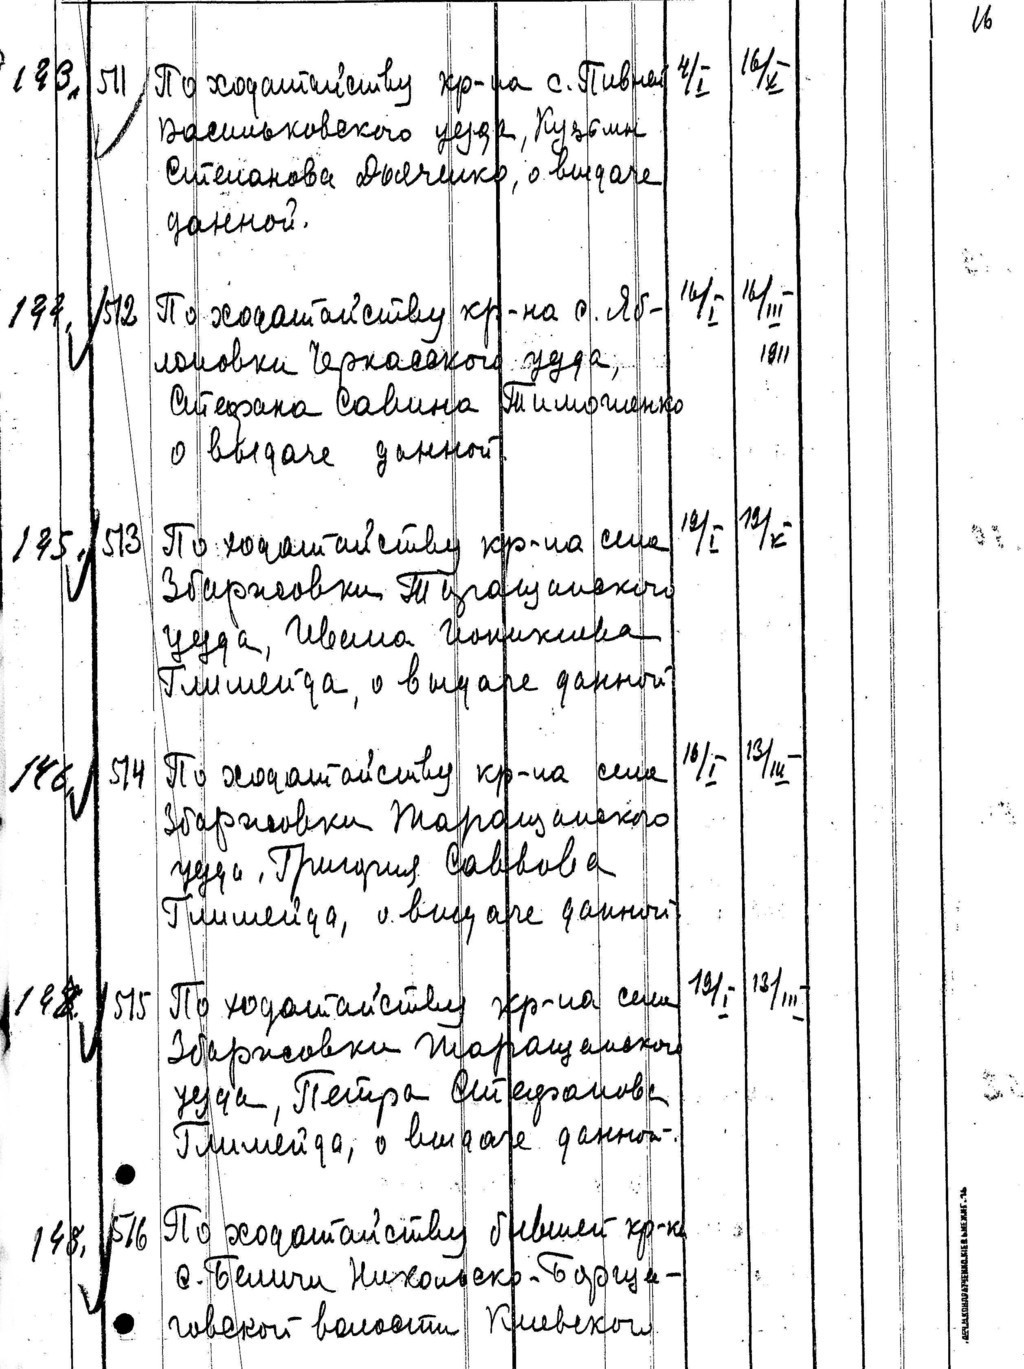 16
193. 511 По ходатайству кр-на с. Пивней 4/I 16/V
Васильковского уезда, Кузьмы
Степанова Дьяченко, о выдаче
данной.
194. 512 По ходатайству кр-на с. Яб- 16/I 16/III
лоновки Черкасского уезда, 1911
Стефана Савина Тимошенко
о выдаче данной.
195. 513 По ходатайству кр-на села 19/I 19/V
Збаржовки Таращанского
уезда, Ивана Ионикиева
Глимейда, о выдаче данной
146. 514 По ходатайству кр-на села 16/I 13/III
Збаржовки Таращанского
уезда, Григория Саввова
Глимейда, о выдаче данной
515 По ходатайству кр-на села 19/I 13/III
Збаржовки Таращанского
уезда, Петра Стефанова
Глимейда, о выдаче данной.
148. 516 По ходатайству бывшей кр-ки
с. Беличи Никольско-Борща-
говской волости Киевского